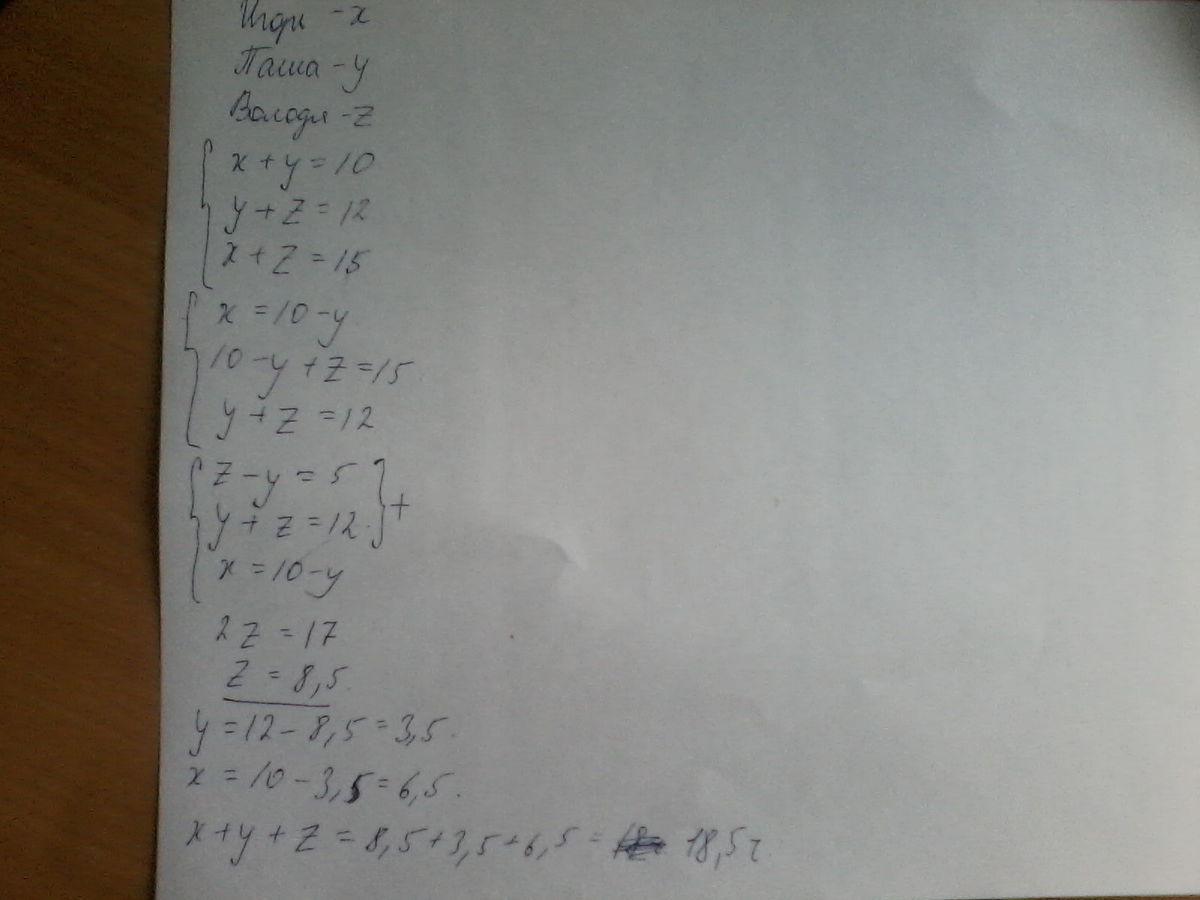 Игорь - x
Паша - y
Володя - z
x + y = 10
y + z = 12
x + z = 15
x = 10 - y
10 - y + z = 15
y + z = 12
z - y = 5
y + z = 12 } +
x = 10 - y
2z = 17
z = 8,5.
y = 12 - 8,5 = 3,5.
x = 10 - 3,5 = 6,5.
x + y + z = 8,5 + 3,5 + 6,5 = 18,5 ч